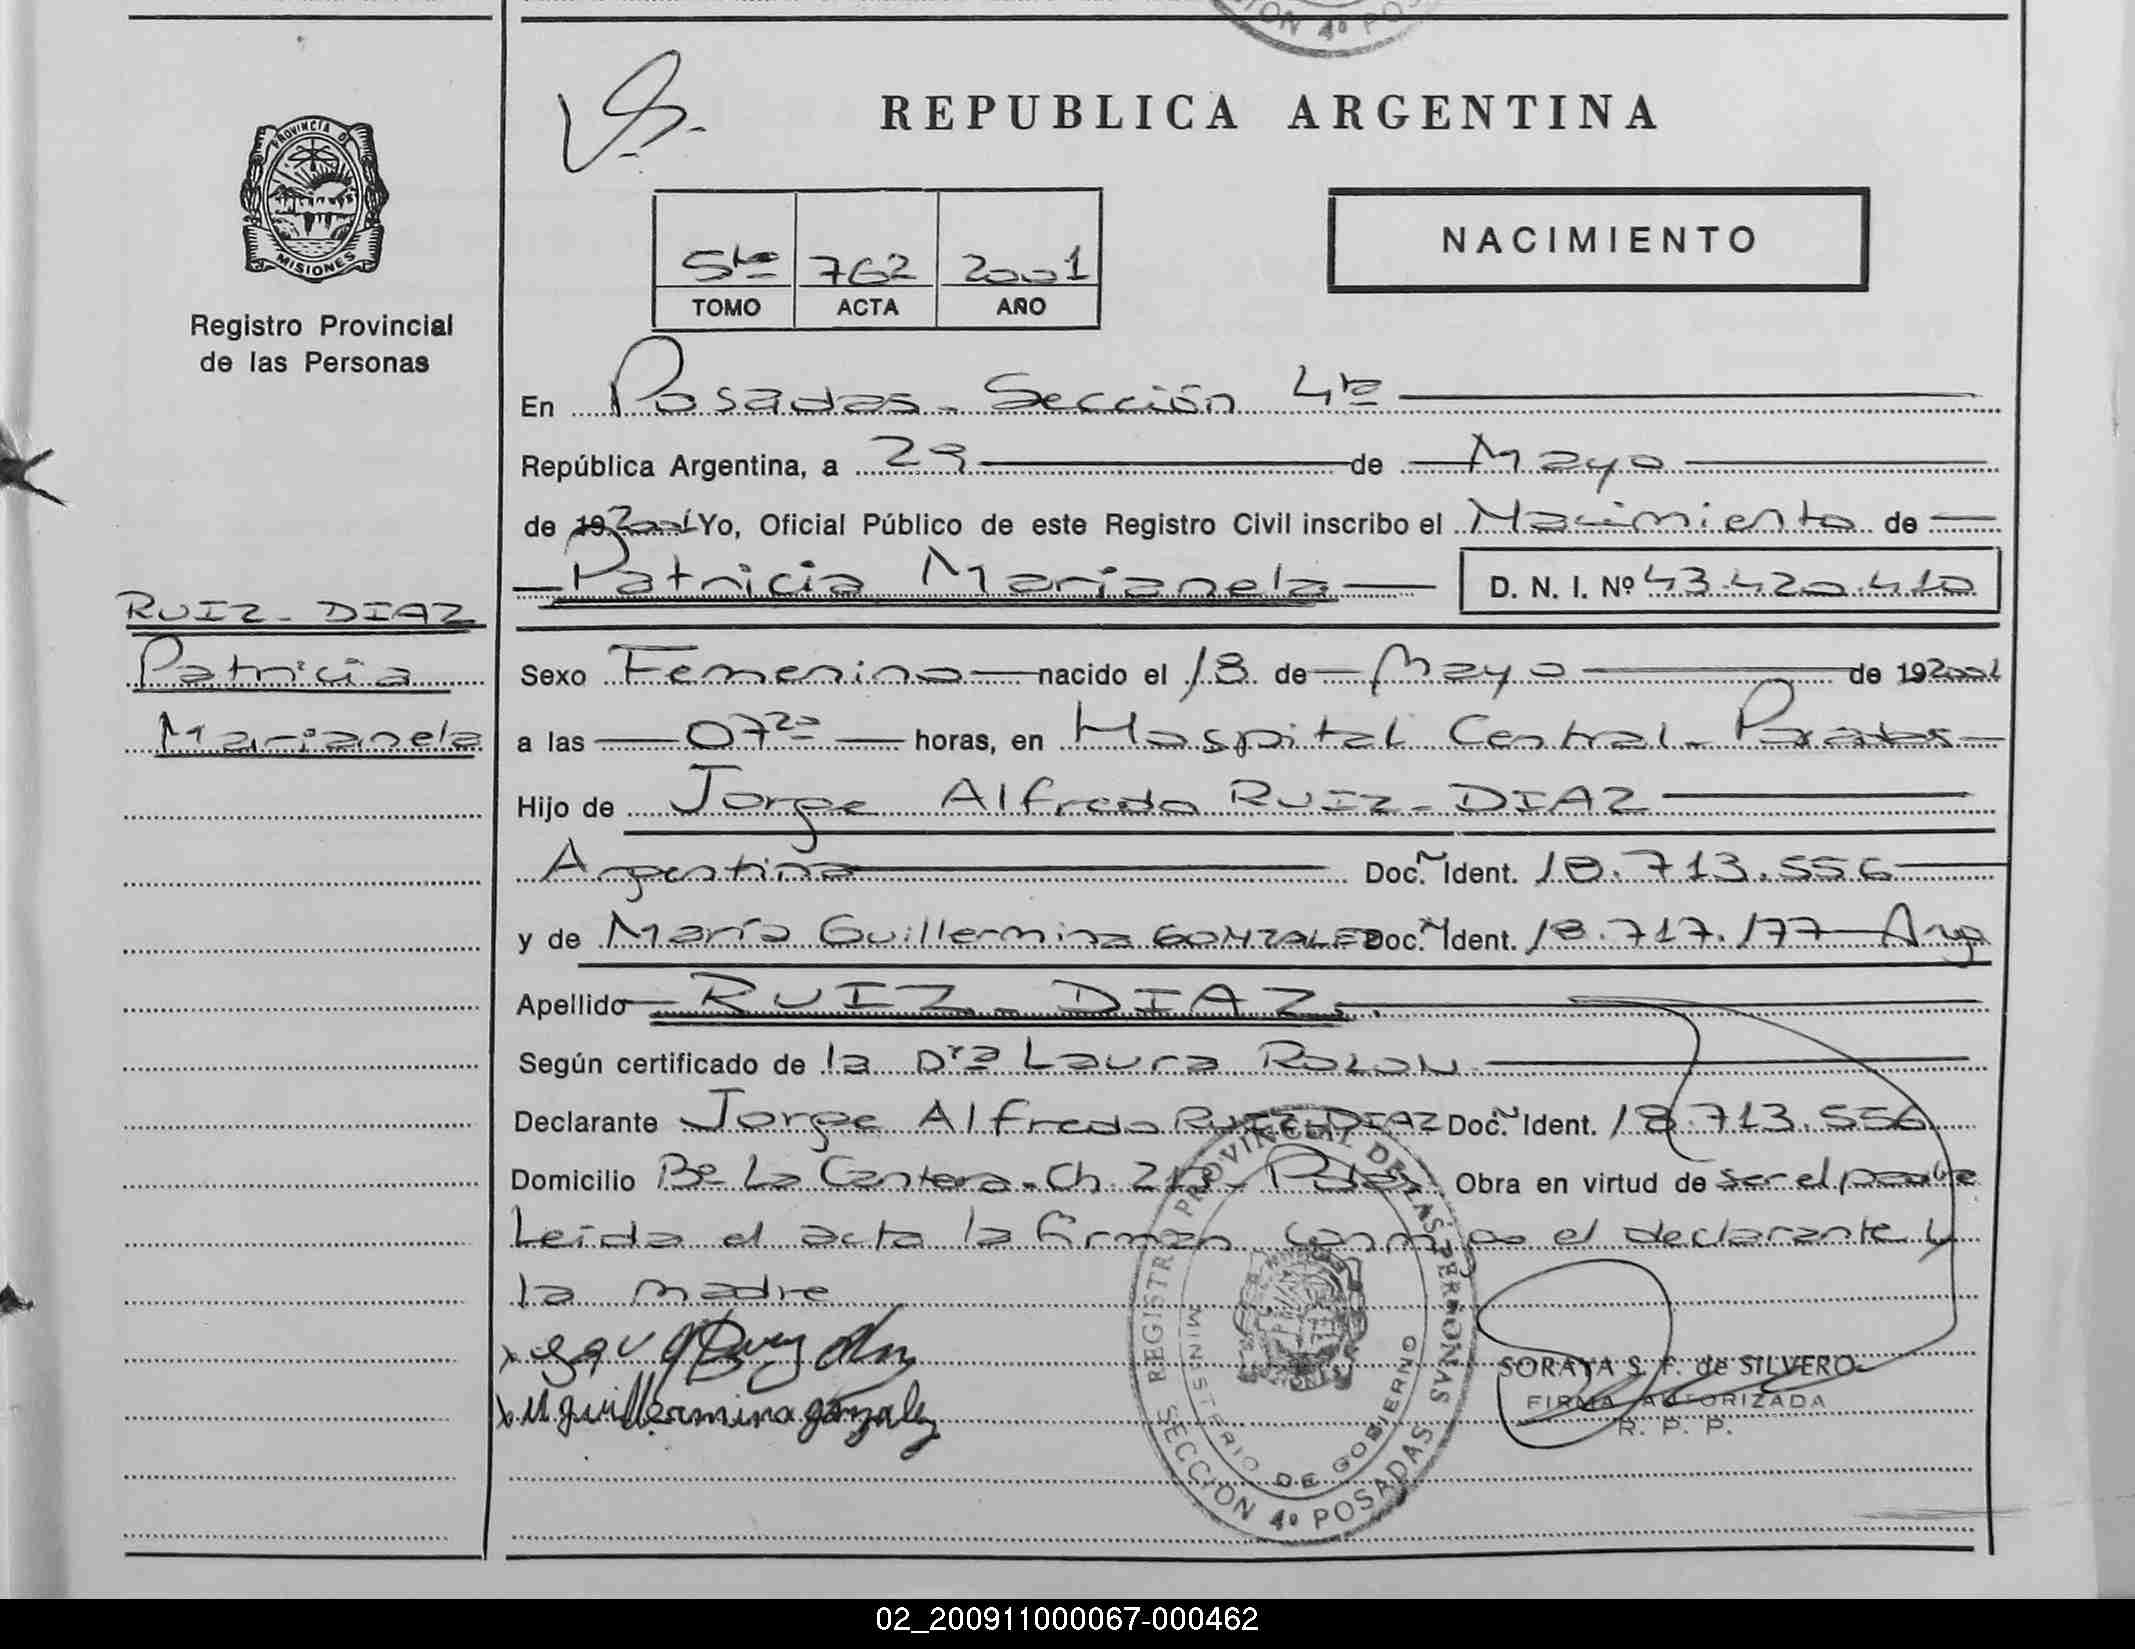 REPUBLICA ARGENTINA
PROVINCIA DE
MISIONES
Registro Provincial
de las Personas
NACIMIENTO
5to 762 2001
TOMO ACTA AÑO
En Posadas - Sección 4ta
República Argentina, a 29 de Mayo
de 19 2001 Yo, Oficial Público de este Registro Civil inscribo el Nacimiento de
Patricia Marianela D. N. I. Nº 43.420.410
RUIZ - DIAZ
Patricia
Marianela
Sexo Femenino nacido el 18 de Mayo de 19 2001
a las 07 20 horas, en Hospital Central - Posadas
Hijo de Jorge Alfredo RUIZ - DIAZ
Argentina Doc. N Ident. 18.713.556
y de María Guillermina GONZALEZ Doc. N Ident. 18.717.177 Arg
Apellido RUIZ - DIAZ.
Según certificado de la Dra Laura ROLON
Declarante Jorge Alfredo RUIZ DIAZ Doc. N Ident. 18.713.556
Domicilio Bº La Cantera - Ch Pdas Obra en virtud de ser el padre
Leida el acta la firman conmigo el declarante y
la madre
M guillermina gonzalez
SORAYA S. F. de SILVERO
FIRMA AUTORIZADA
R. P. P.
REGISTRO PROVINCIAL DE LAS PERSONAS
MINISTERIO DE GOBIERNO
SECCION 4º POSADAS
02_200911000067-000462